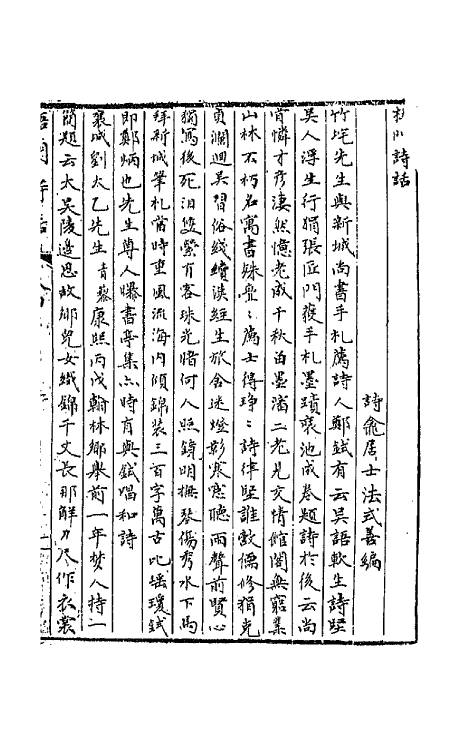 詩話
詩龕居士法式善編
竹垞先生與新城尚書手札薦詩人鄭鉽有云吳語軟生詩堅
吳人浮生行狷張匠門獲手札墨蹟裝池成卷題詩於後云尚
書憐才彥淒然憶老成千秋泊墨瀋二老見交情館閣無窮業
山林不朽名寓書殊亹亹薦士得琤琤詩律堅誰敵儒修狷克
貞瀾迴吳習俗綫續漢經生旅舍迷燈影寒窓聽雨聲前賢心
獨寫後死淚雙縈有客珠光睹何人照鏡明撫琴傷秀水下馬
拜新城筆札當時重風流海內傾錦裝三百字萬古比瑤瓊鉽
即鄭炳也先生尊人曝書亭集亦時有與鉽唱和詩
襄城劉太乙先生青藜康熙丙戌翰林鄉舉前一年梦人持一
簡題云太吳陵邊思故鄉兒女織錦千丈長那解刀尺作衣裳